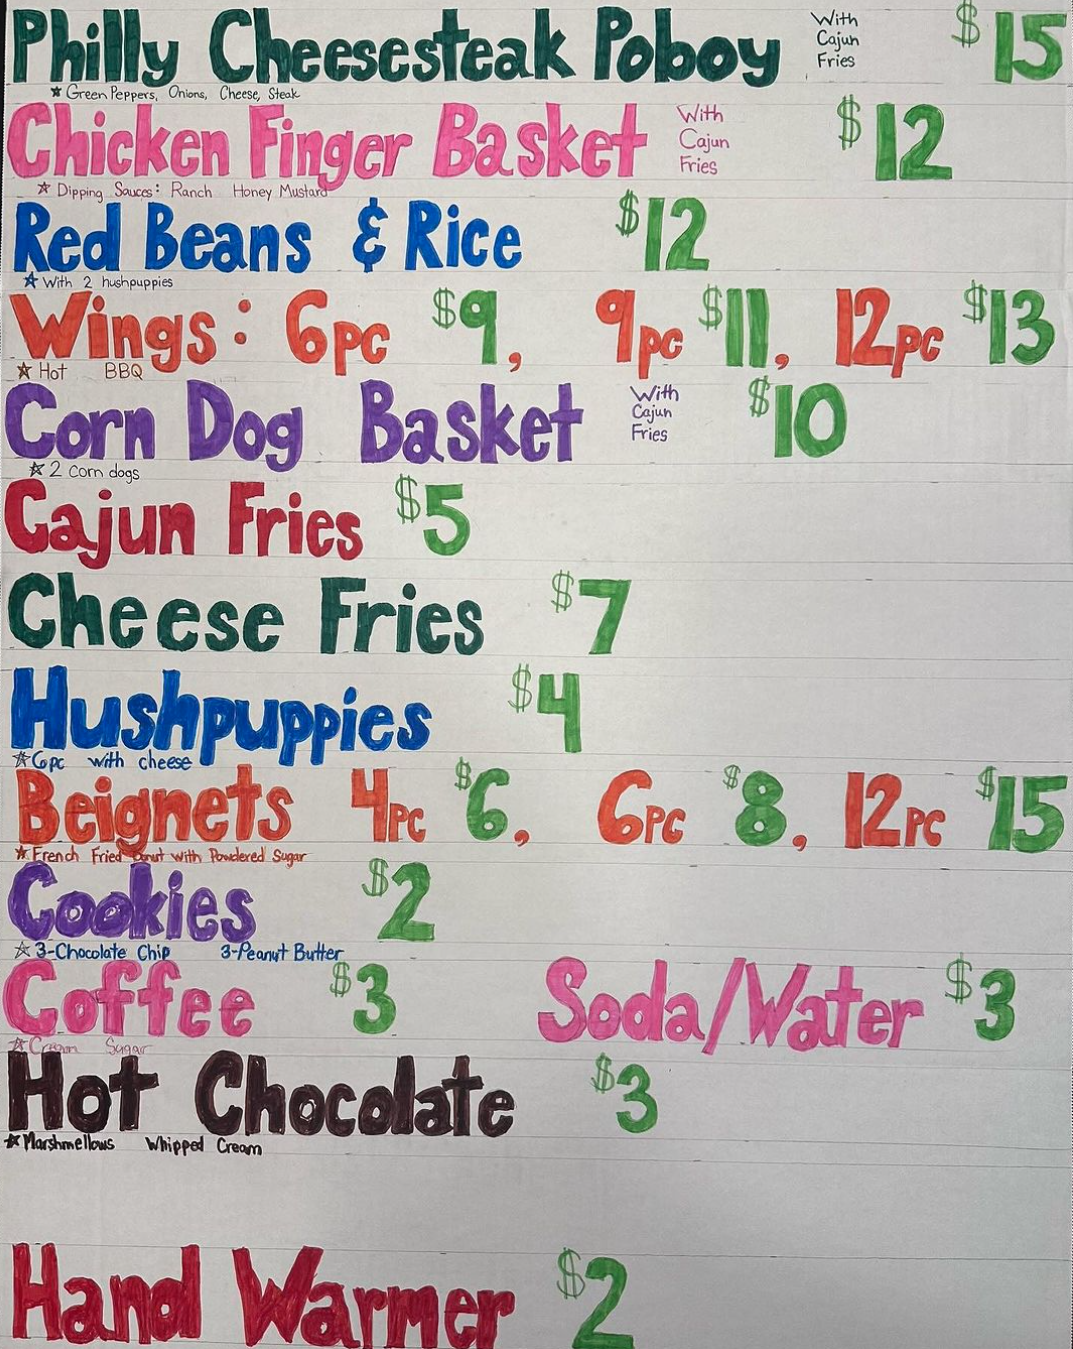 Philly Cheesesteak Poboy With Cajun Fries $15
☆ Green Peppers, Onions, Cheese, Steak
Chicken Finger Basket With Cajun Fries $12
☆ Dipping Sauces: Ranch Honey Mustard
Red Beans & Rice $12
☆ With 2 hushpuppies
Wings: 6pc $9, 9pc $11, 12pc $13
☆ Hot BBQ
Corn Dog Basket With Cajun Fries $10
☆ 2 corn dogs
Cajun Fries $5
Cheese Fries $7
Hushpuppies $4
☆ 6pc with cheese
Beignets 4pc $6, 6pc $8, 12pc $15
☆ French Fried Donut with Powdered Sugar
Cookies $2
☆ 3-Chocolate Chip 3-Peanut Butter
Coffee $3 Soda/Water $3
☆ Cream Sugar
Hot Chocolate $3
☆ Marshmellows Whipped Cream
Hand Warmer $2